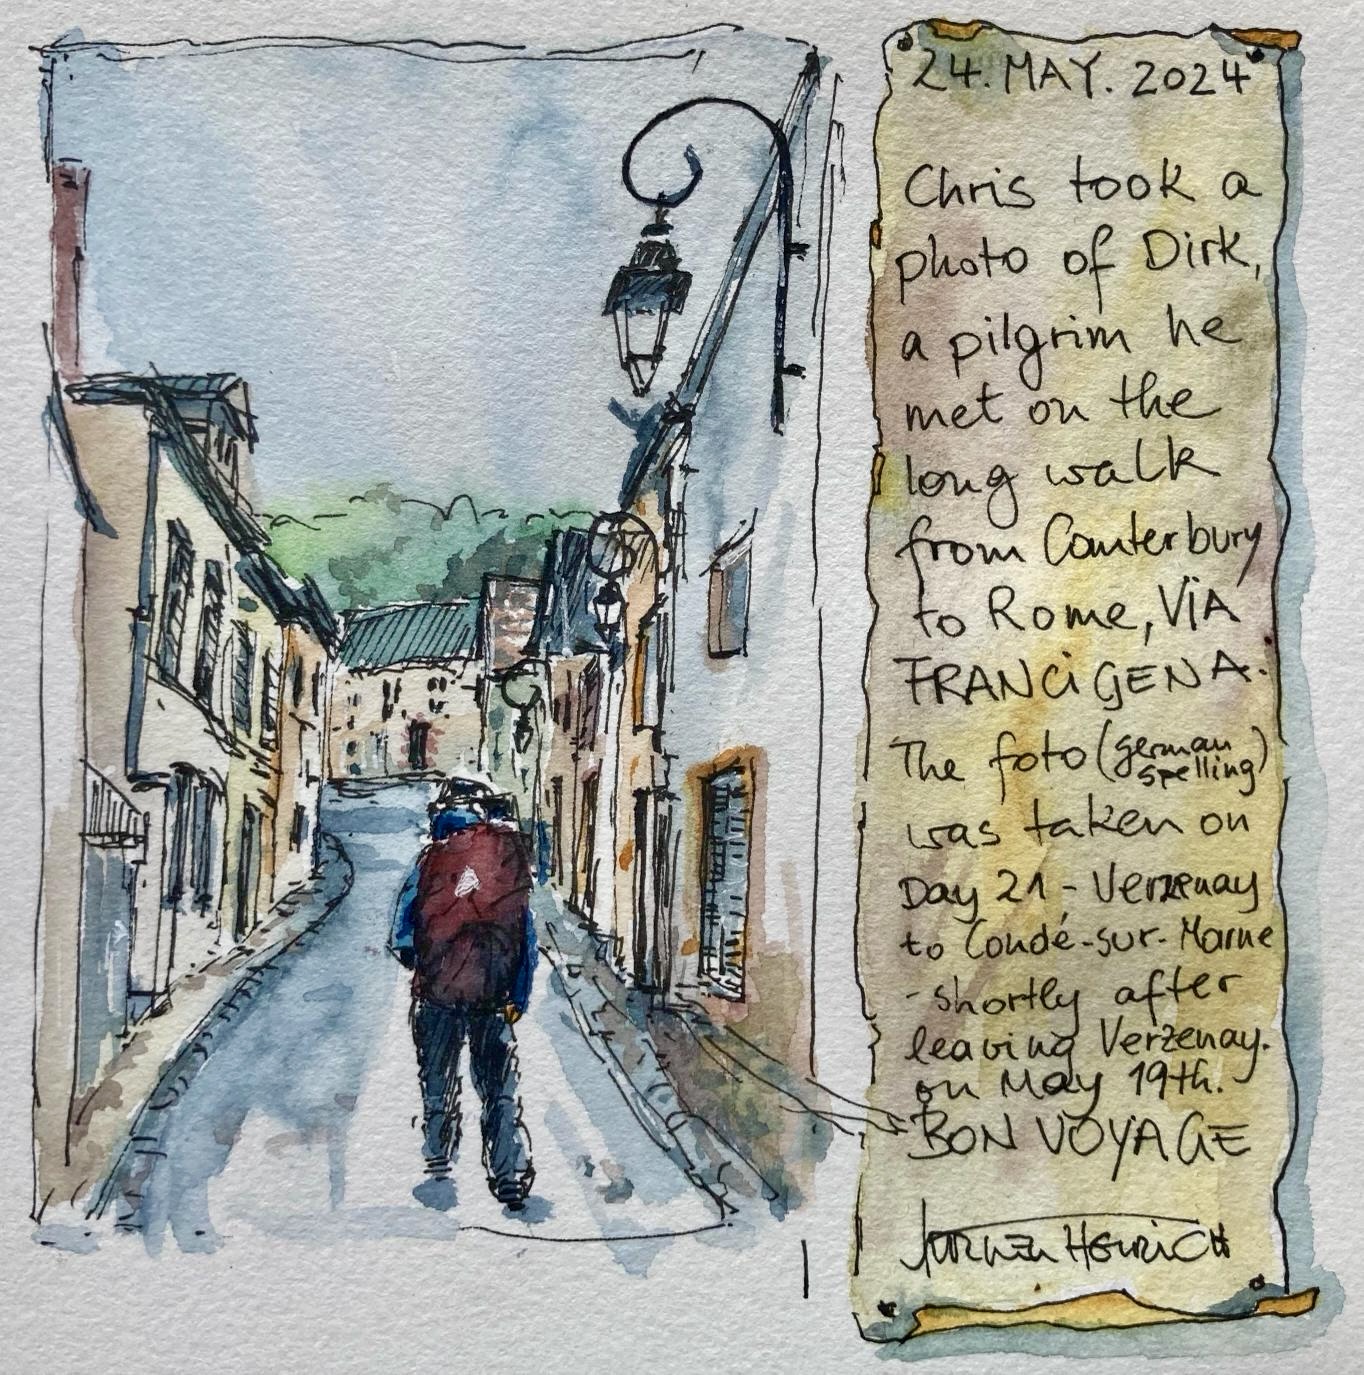 24. MAY. 2024
Chris took a
photo of Dirk,
a pilgrim he
met on the
long walk
from Canterbury
to Rome, ViA
FRANCiGENA.
The foto (german
spelling)
was taken on
Day 21 - Verzenay
to Condé-sur-Marne
- shortly after
leaving Verzenay.
on May 19th.
BON VOYAGE
Heinrich